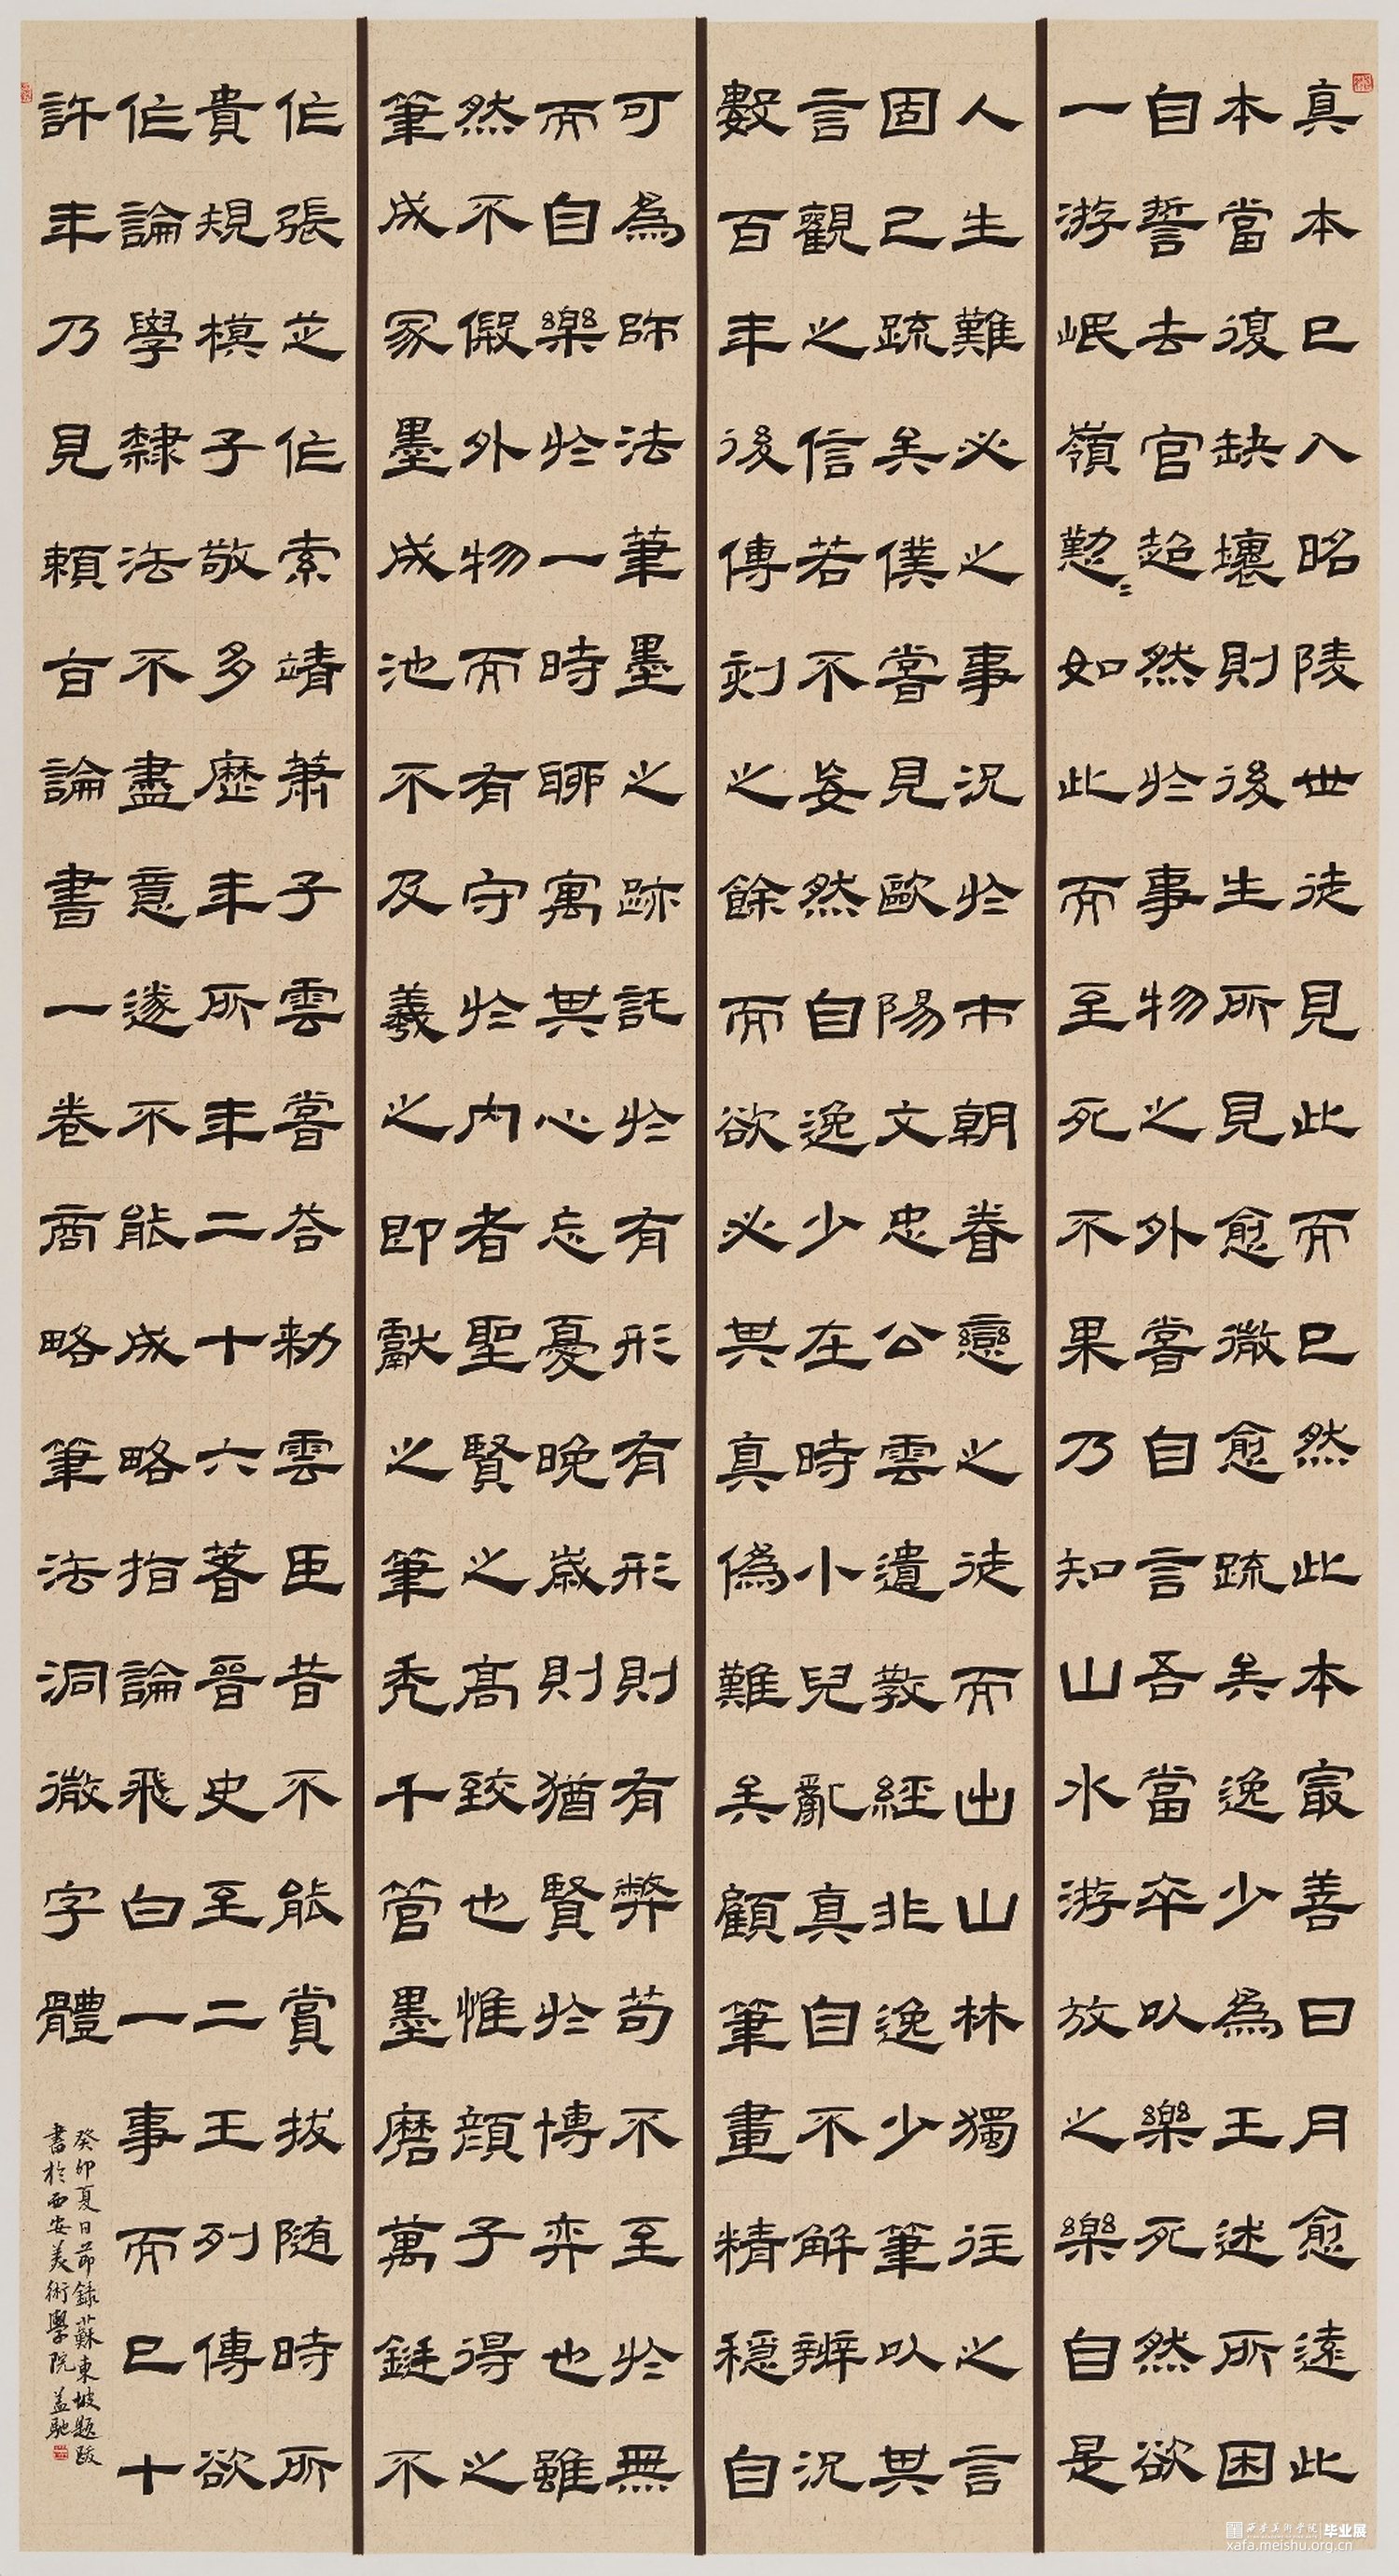 真本已入昭陵世徒見此而已然此本最善日月愈遠此
本當復缺壞則後生所見愈微愈疏矣逸少為王述所困
自誓去官超然於事物之外嘗自言吾當卒以樂死然欲
一游岷嶺懃〻如此而至死不果乃知山水游放之樂自是
人生難必之事況於市朝眷戀之徒而出山林獨往之言
固已疏矣僕嘗見歐陽文忠公雲遺教經非逸少筆以其
言觀之信若不妄然自逸少在時小兒亂真自不解辨況
數百年後傳刻之餘而欲必其真偽難矣顧筆畫精穩自
可為師法筆墨之跡託於有形有形則有弊苟不至於無
而自樂於一時聊寓其心忘憂晚歲則猶賢於博弈也雖
然不假外物而有守於內者聖賢之高致也惟顏子得之
筆成冢墨成池不及羲之即獻之筆禿千管墨磨萬鋌不
作張芝作索靖蕭子雲嘗荅勑雲臣昔不能賞拔隨時所
貴規模子敬多歷年所年二十六著晉史至二王列傳欲
作論學隸法不盡意遂不能成略指論飛白一事而已十
許年乃見頼百論書一卷商略筆法洞微字體
癸卯夏日節錄蘇東坡題跋
書於西安美術學院 孟馳
西安美術學院 毕业展
xafa.meishu.org.cn